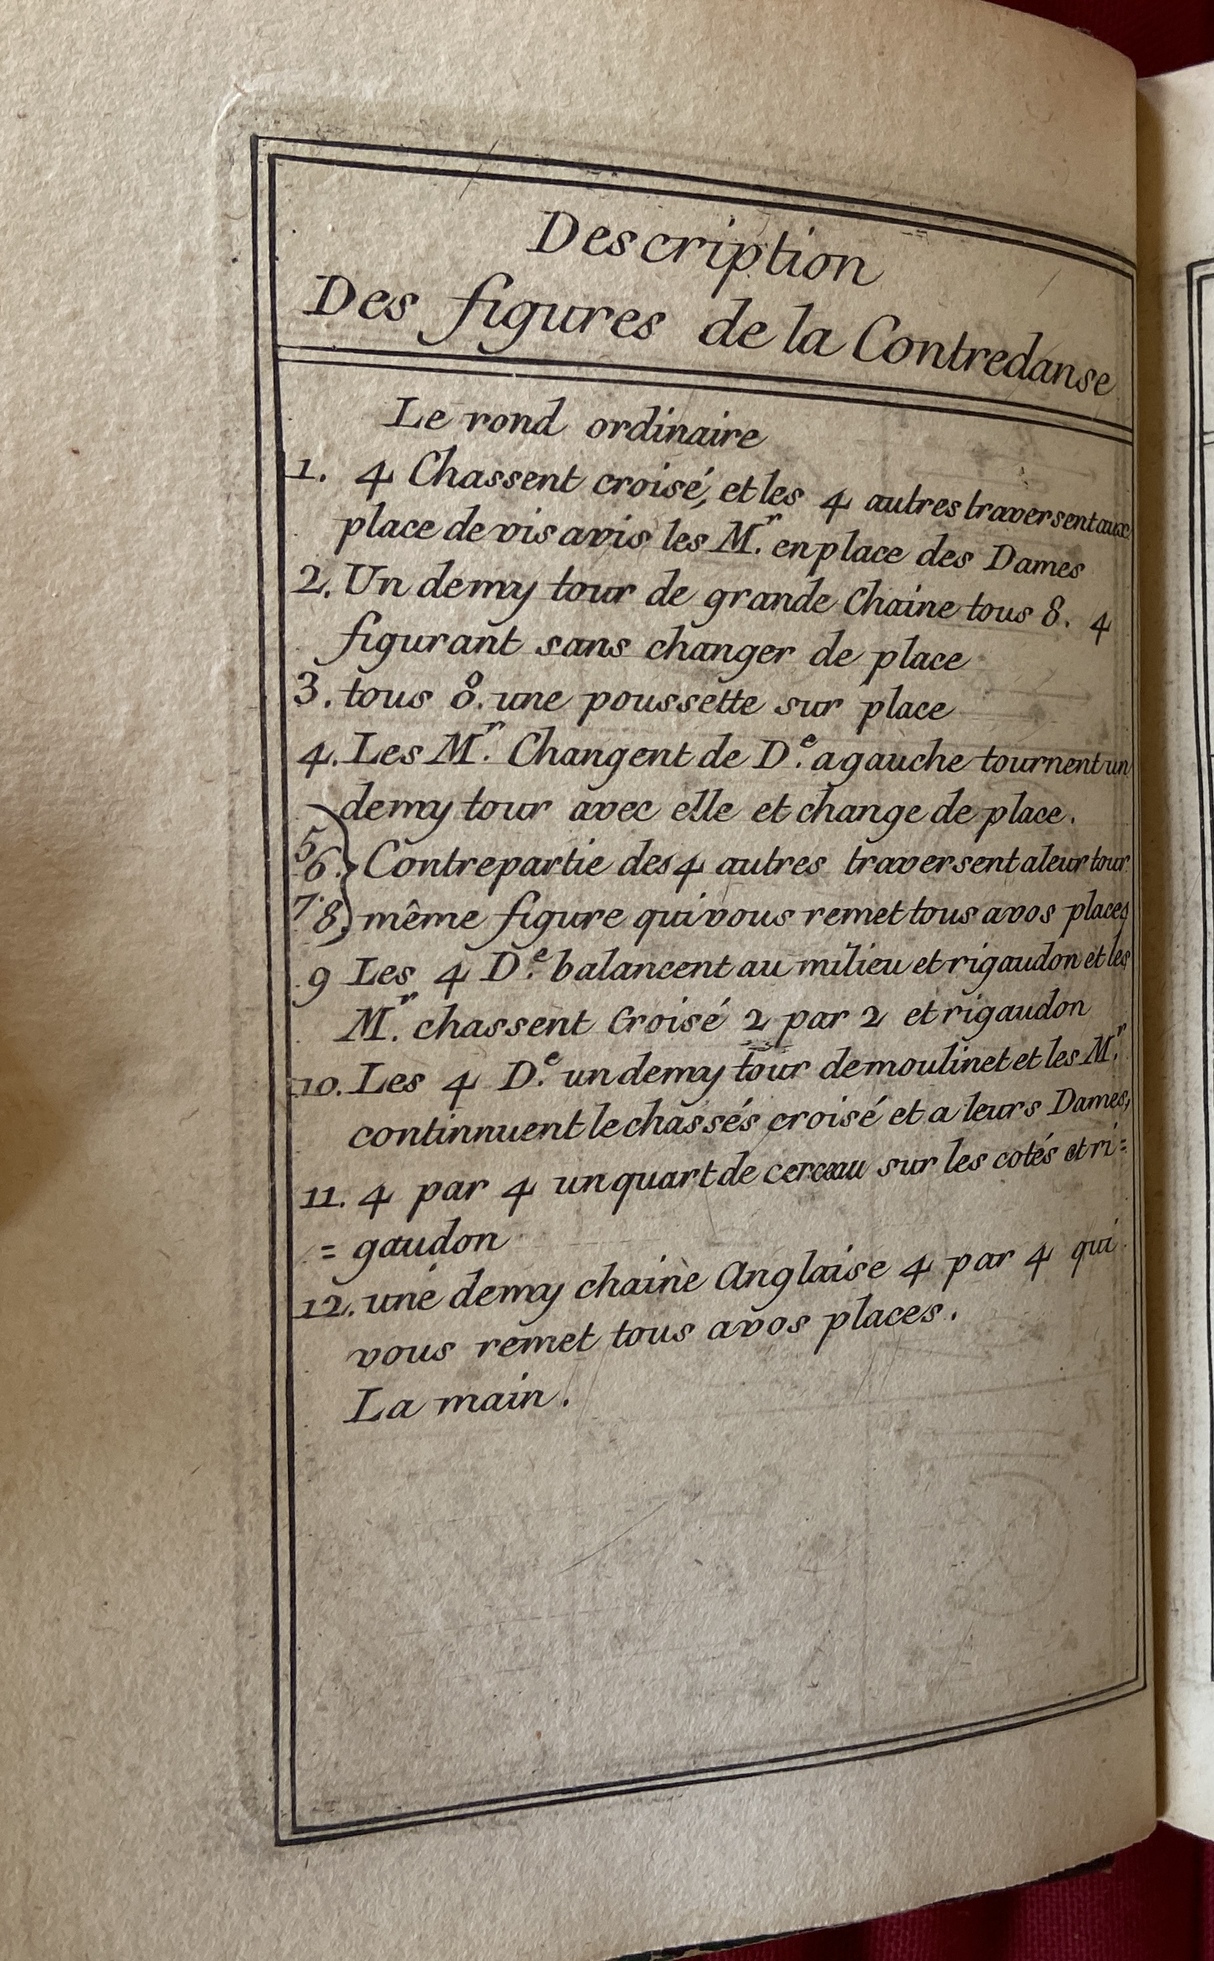 Description
Des figures de la Contredanse
Le rond ordinaire
1. 4 Chassent croisé, et les 4 autres traversent aux
place de vis avis les M.r en place des Dames
2. Un demy tour de grande Chaine tous 8. 4
figurant sans changer de place
3. tous 8. une poussette sur place
4. Les M.r Changent de D.e a gauche tournent un
demy tour avec elle et change de place.
5
6. Contrepartie des 4 autres traversent a leur tour
7. 8 même figure qui vous remet tous a vos places
9 Les 4 D.e balancent au milieu et rigaudon et les
M.r chassent Croisé 2 par 2 et rigaudon
10. Les 4 D.e un demy tour de moulinet et les M.r
continnuent le chassés croisé et a leurs Dames,
11. 4 par 4 un quart de cerceau sur les cotés et ri=
= gaudon
12. une demy chaine Anglaise 4 par 4 qui
vous remet tous a vos places.
La main.